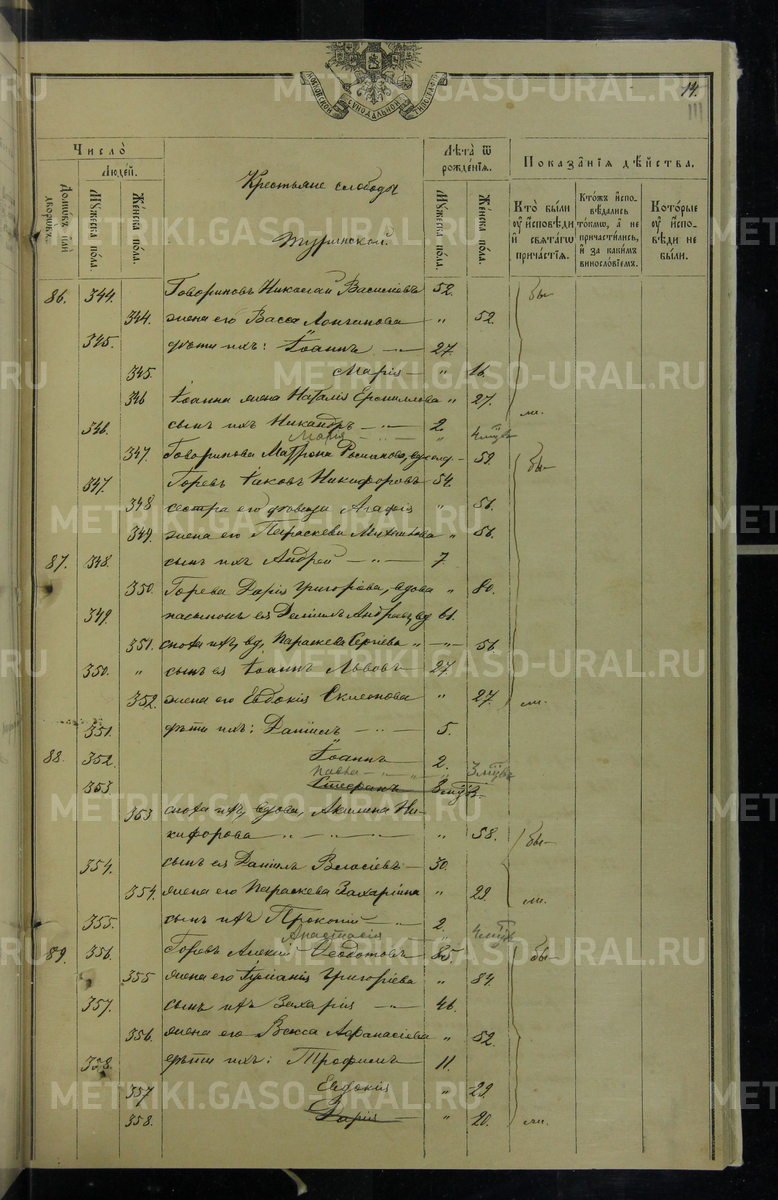 МОСКОВСКОЙ СѴНОДАЛЬНОЙ ТИПОГРАФІИ
14.
III
Число̀
Людей.
Домовъ или дворовъ.
Мужеска пола.
Женска пола.
Крестьяне слободы
Туринской.
Лѣта ѿ рожденїѧ.
Мужеска пола.
Женска пола.
Показанїѧ дѣйства.
Кто̀ были оу исповѣди и свѧтагѡ причастїѧ.
Ктожъ исповѣдались токмѡ, а не причастились, и за какимъ винословїемъ.
Которые оу исповѣди не были.
86. 344. Говориновъ Николай Василіевъ 52. бы-
344. жена его Васса Лонгинова " 52.
345. дѣти ихъ: Іоаннъ — 27.
345. Марія — " 16.
346 Іоанна жена Наталія " 27.
346. сынъ ихъ Никандръ — " — 2. ли.
Марія — " 4 мцъ
347. Говоринова Матрона Романова, — 59. бы-
347. Горевъ Іаковъ Никифоровъ 54.
348 сестра его Агафія " 56.
349. жена его Параскева " 56.
87. 348. сынъ ихъ Андрей — " — 7
350. Горева Дарія Григоріева, вдова " 80.
349. пасынокъ ея Даніилъ Андреевъ, вд 61.
351. сноха ихъ, вд, Параскева Сергіева " — 56
350. " сынъ ея Іоаннъ Львовъ — 27.
352. жена его Евдокія " 27. ли.
351. дѣти ихъ: Даніилъ — " — 5.
88. 352. Іоаннъ — 2.
Павла — " 3 мцъ
353 3 мцъ.
353 сноха ихъ, вдова, Акилина Ни-
кифорова — " — " — 58. бы-
354. сынъ ея Даніилъ Власіевъ — 30.
354. жена его Параскева Захаріина " 29. ли.
355. сынъ ихъ Прокопій — " 2.
Анастасія " 4 мцъ
89. 356. Горевъ Алексій Ѳеодотовъ 85. бы-
355 жена его Іуліанія Григоріева " 84.
357. сынъ ихъ Захарія — " — 46.
356. жена его Васса Афанасіева " 52.
358. дѣти ихъ: Трофимъ 11.
357 Евдокія " 29.
358. Дарія — " 20. ли.
METRIKI.GASO-URAL.RU